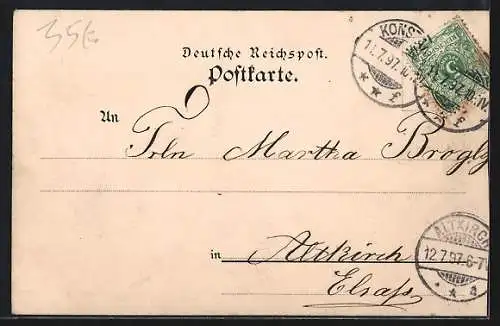 35€
Deutsche Reichspost.
Postkarte.
KONST
11.7.97.
ALTKIRCH
12.7.97.6-7
An Frln Martha Brogly
in Altkirch
Elsaß